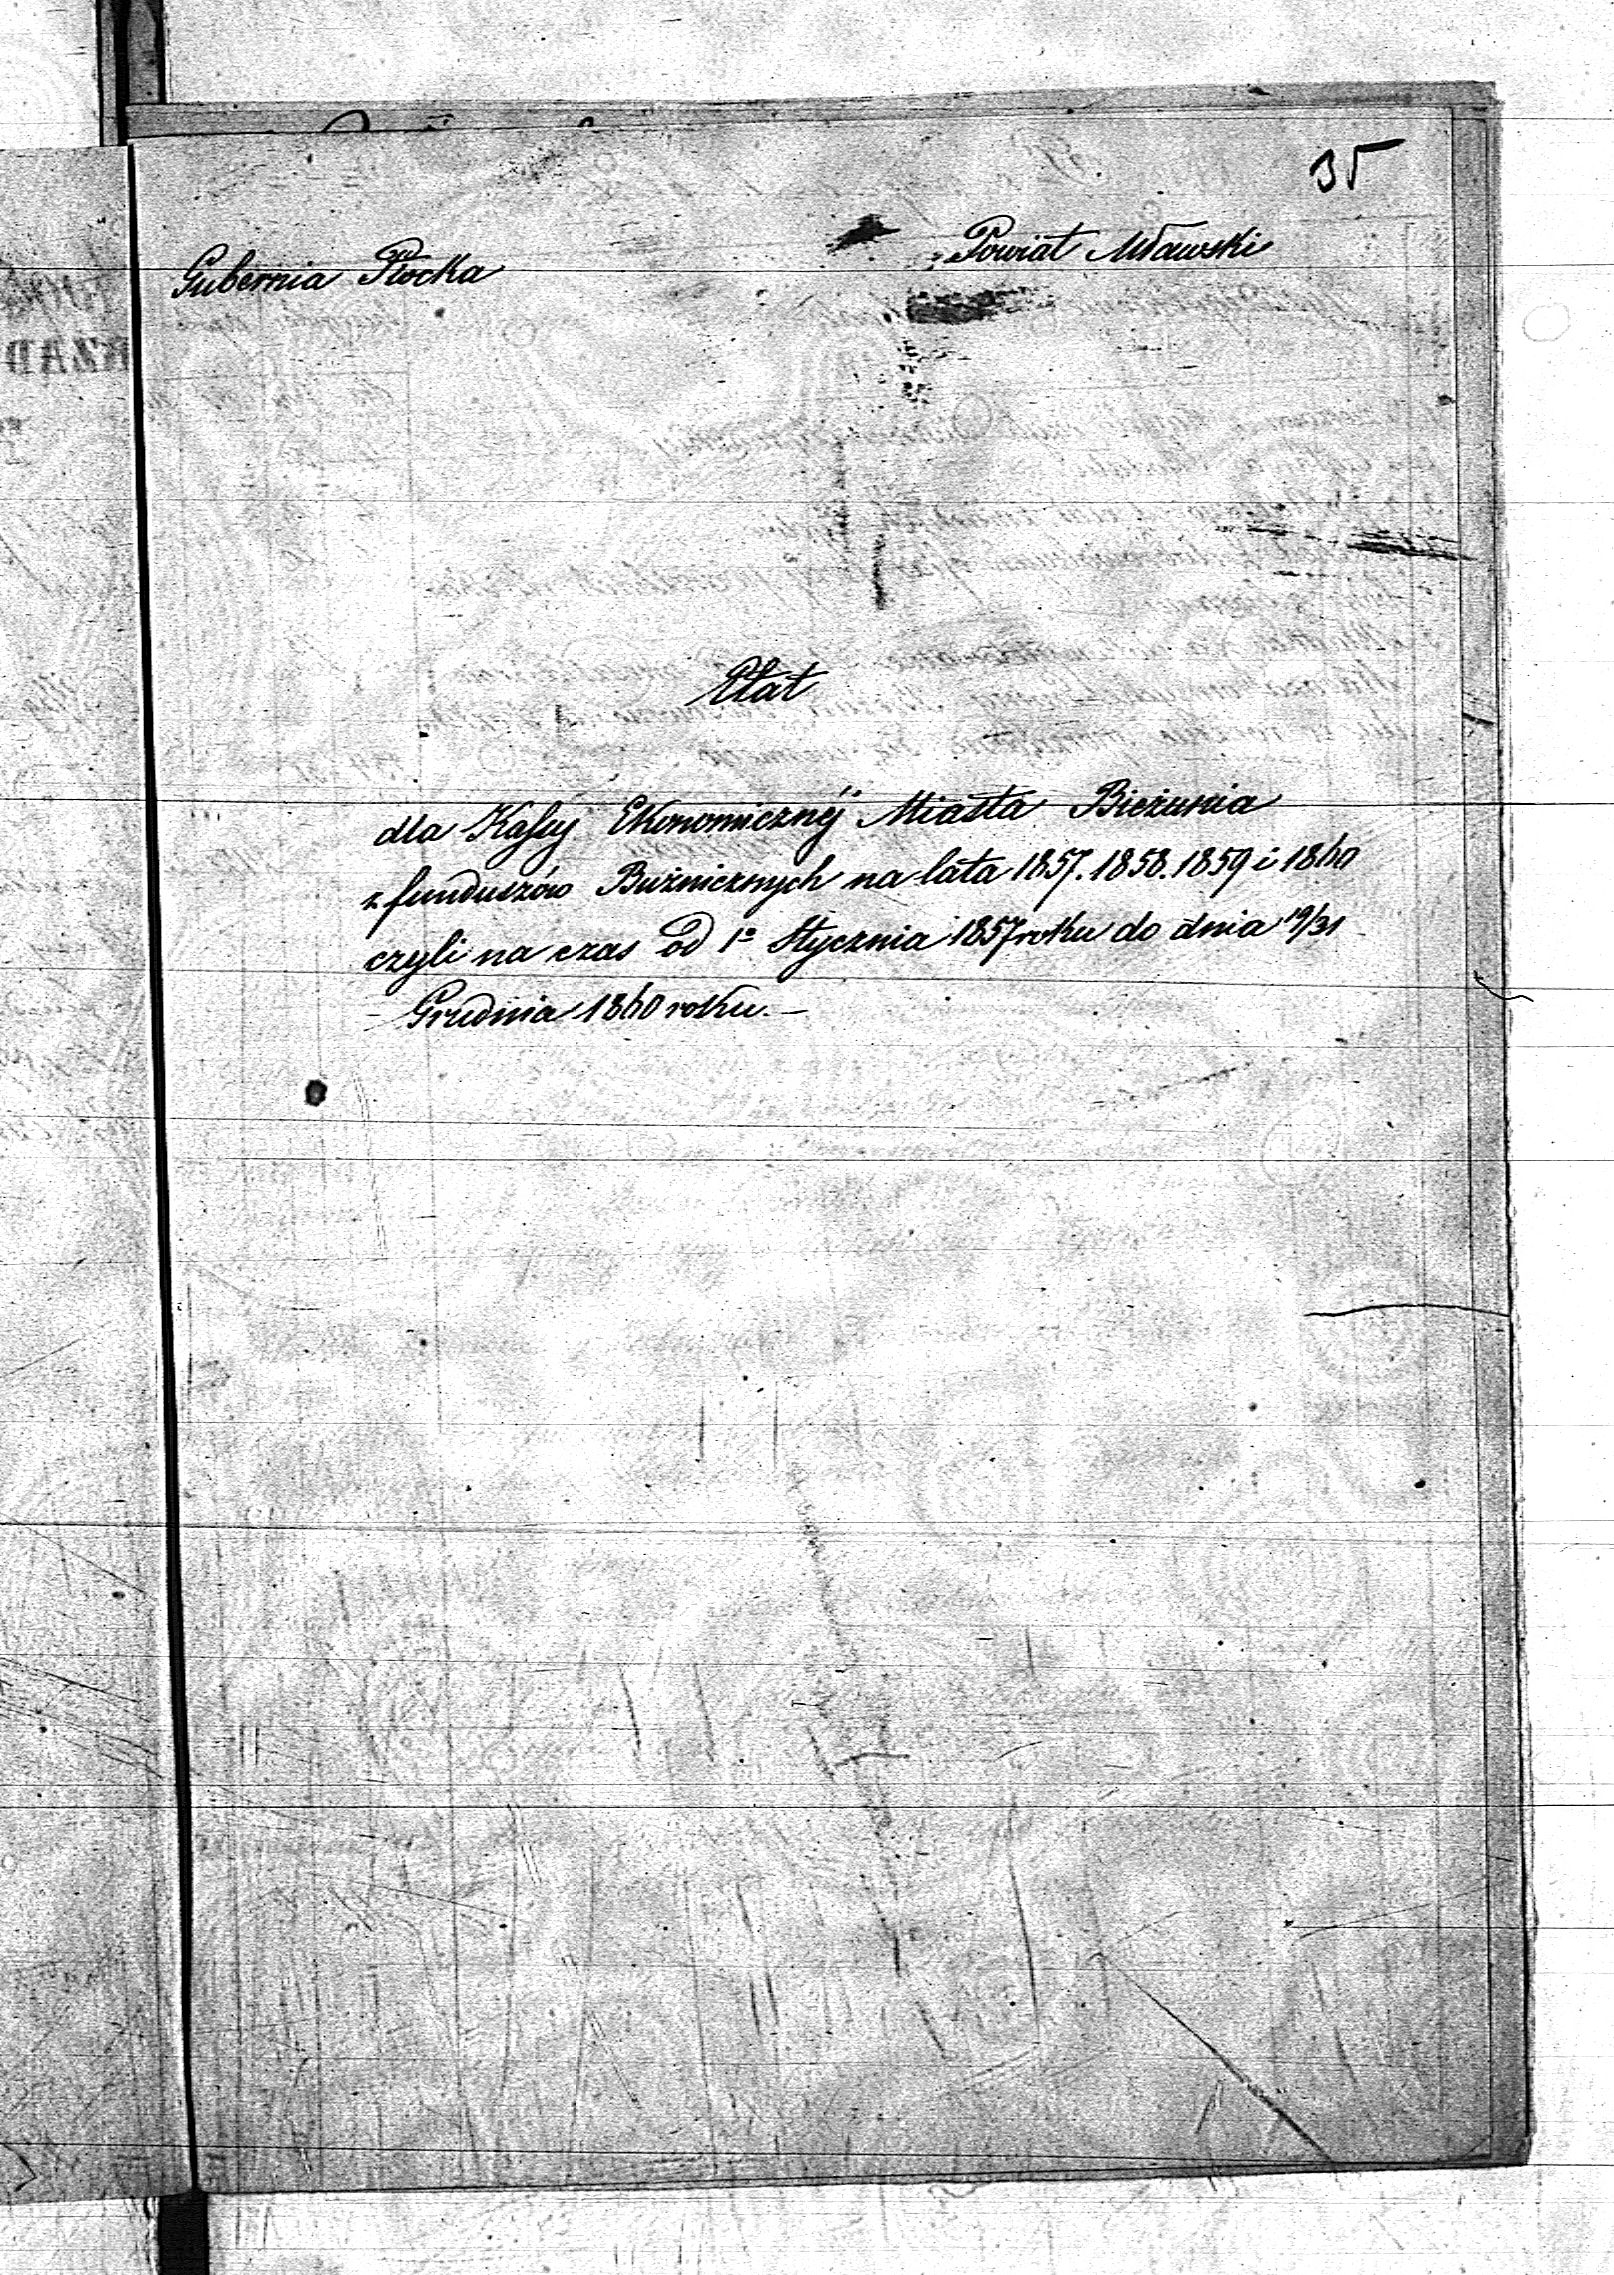 35
Gubernia Płocka
Powiat Mławski
Etat
dla Kassy Ekonomicznéj Miasta Bieżunia
z funduszów Bużnicznych na lata 1857. 1858. 1859 i 1860
czyli na czas od 1º Stycznia 1857 roku do dnia 19/31
Grudnia 1860 roku.